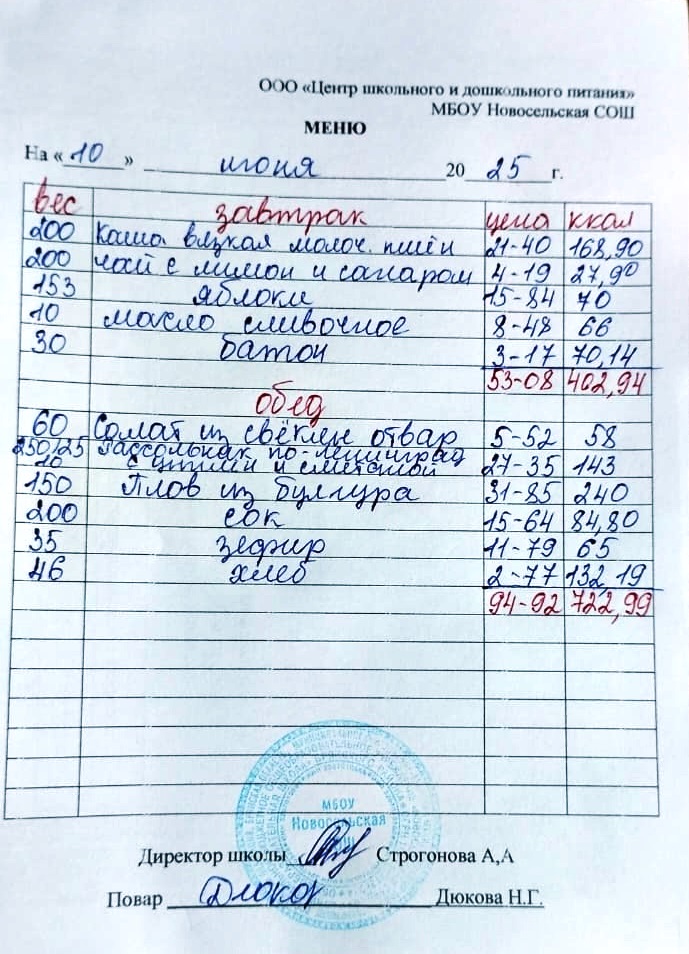 ООО «Центр школьного и дошкольного питания»
МБОУ Новосельская СОШ
МЕНЮ
На « 10 » июня 20 25 г.
вес завтрак цена ккал
200 Каша вязкая молоч. пшён 21-40 168,90
200 чай с лимон и сахаром 4-19 27,90
153 яблоки 15-84 70
10 масло сливочное 8-48 66
30 батон 3-17 70,14
53-08 402,94
обед
60 Салат из свёклы отвар 5-52 58
250/25 Рассольник по-ленинград
10 с птицей и сметаной 27-35 143
150 Плов из булгура 31-85 240
200 сок 15-64 84,80
35 зефир 11-79 65
46 хлеб 2-77 132,19
94-92 722,99
МБОУ
Новосельская
СОШ
Директор школы Строгонова А,А
Повар Дюкова Н.Г.